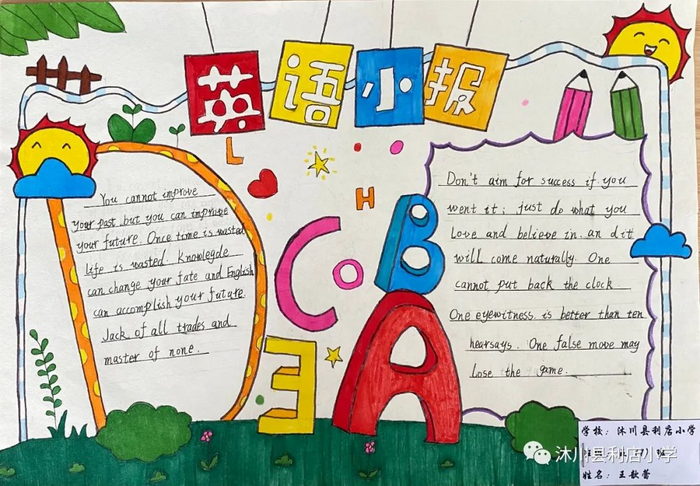 英语小报
You cannot improve
your past but you can improve
your future. Once time is wasted
life is wasted. Knowlegde
can change your fate and English
can accomplish your future.
Jack of all trades and
master of none.
Don't aim for success if you
went it; just do what you
Love and believe in. an d it
will come naturally. One
cannot put back the clock
One eyewitness is better than ten
hearsays. One false move may
Lose the game.
L
H
C
O
B
E
A
学校:沐川县利店小学
姓名:王歆蕾
沐川县利店小学